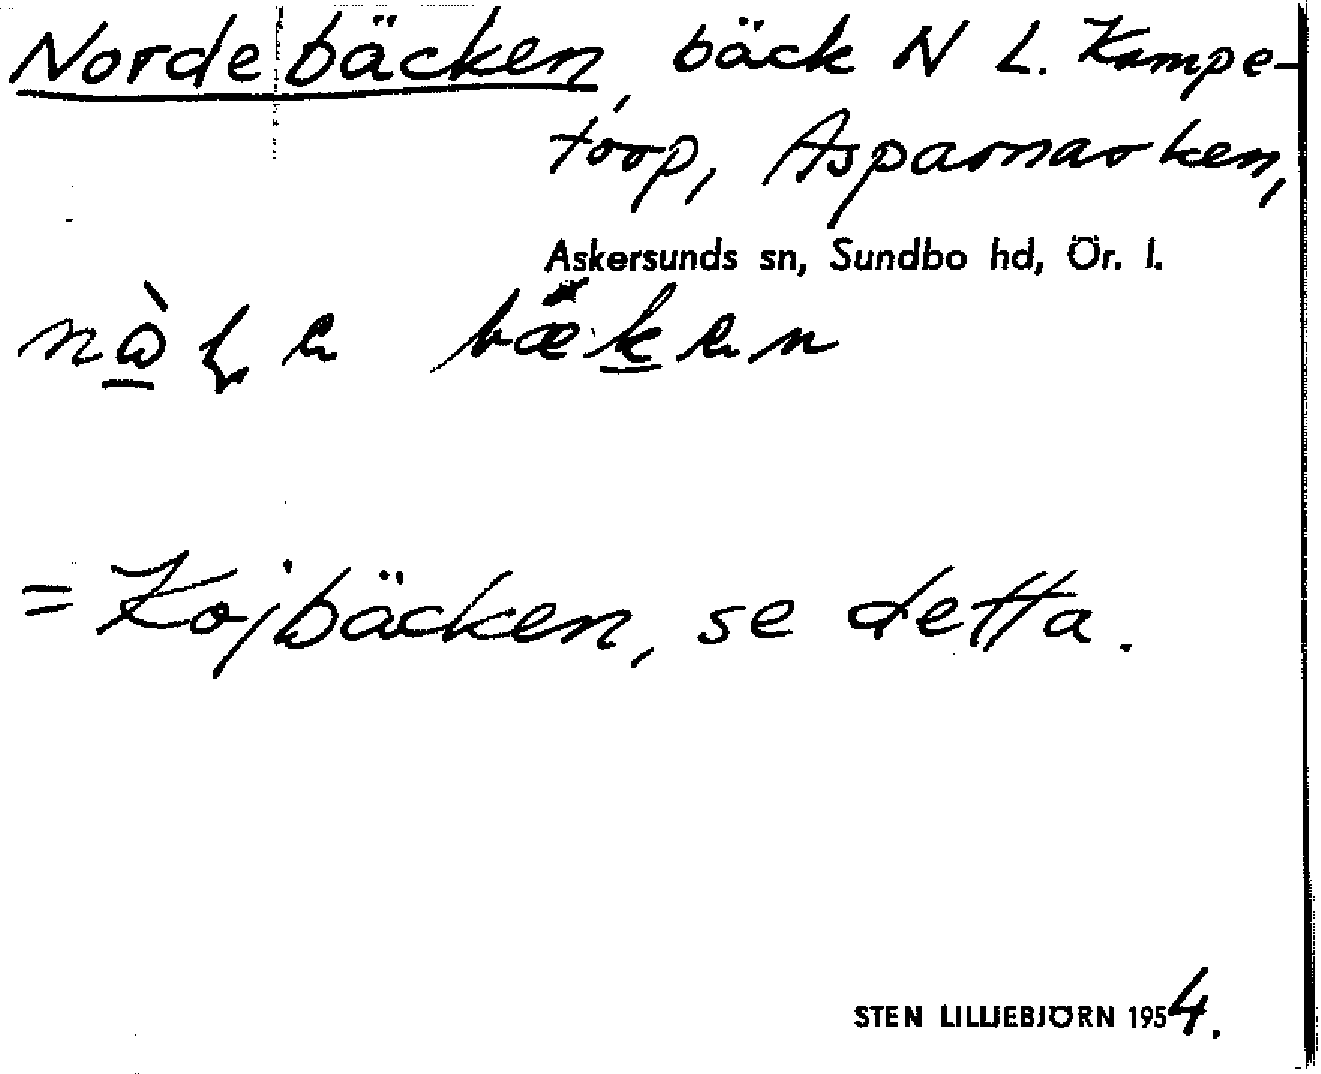 Nordebäcken, bäck N L. Kampe-
torp, Asparnarken,
Askersunds sn, Sundbo hd, Ör. l.
bæken
= Kojbäcken, se detta.
STEN LILLIEBJÖRN 1954.